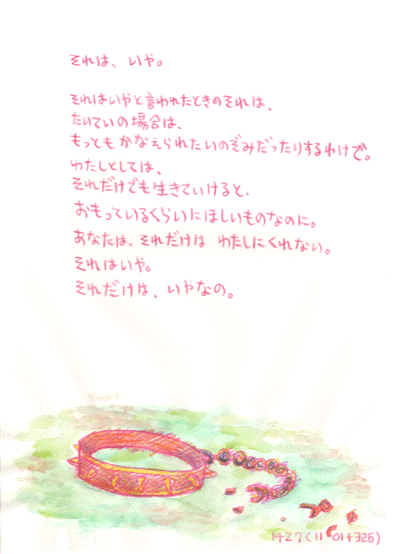 それは、いや。
それはいやと言われたときのそれは、
たいていの場合は、
もっともかなえられたいのぞみだったりするわけで。
わたしとしては、
それだけでも生きていけると、
おもっているくらいにほしいものなのに。
あなたは、それだけは わたしにくれない。
それはいや。
それだけは、いやなの。